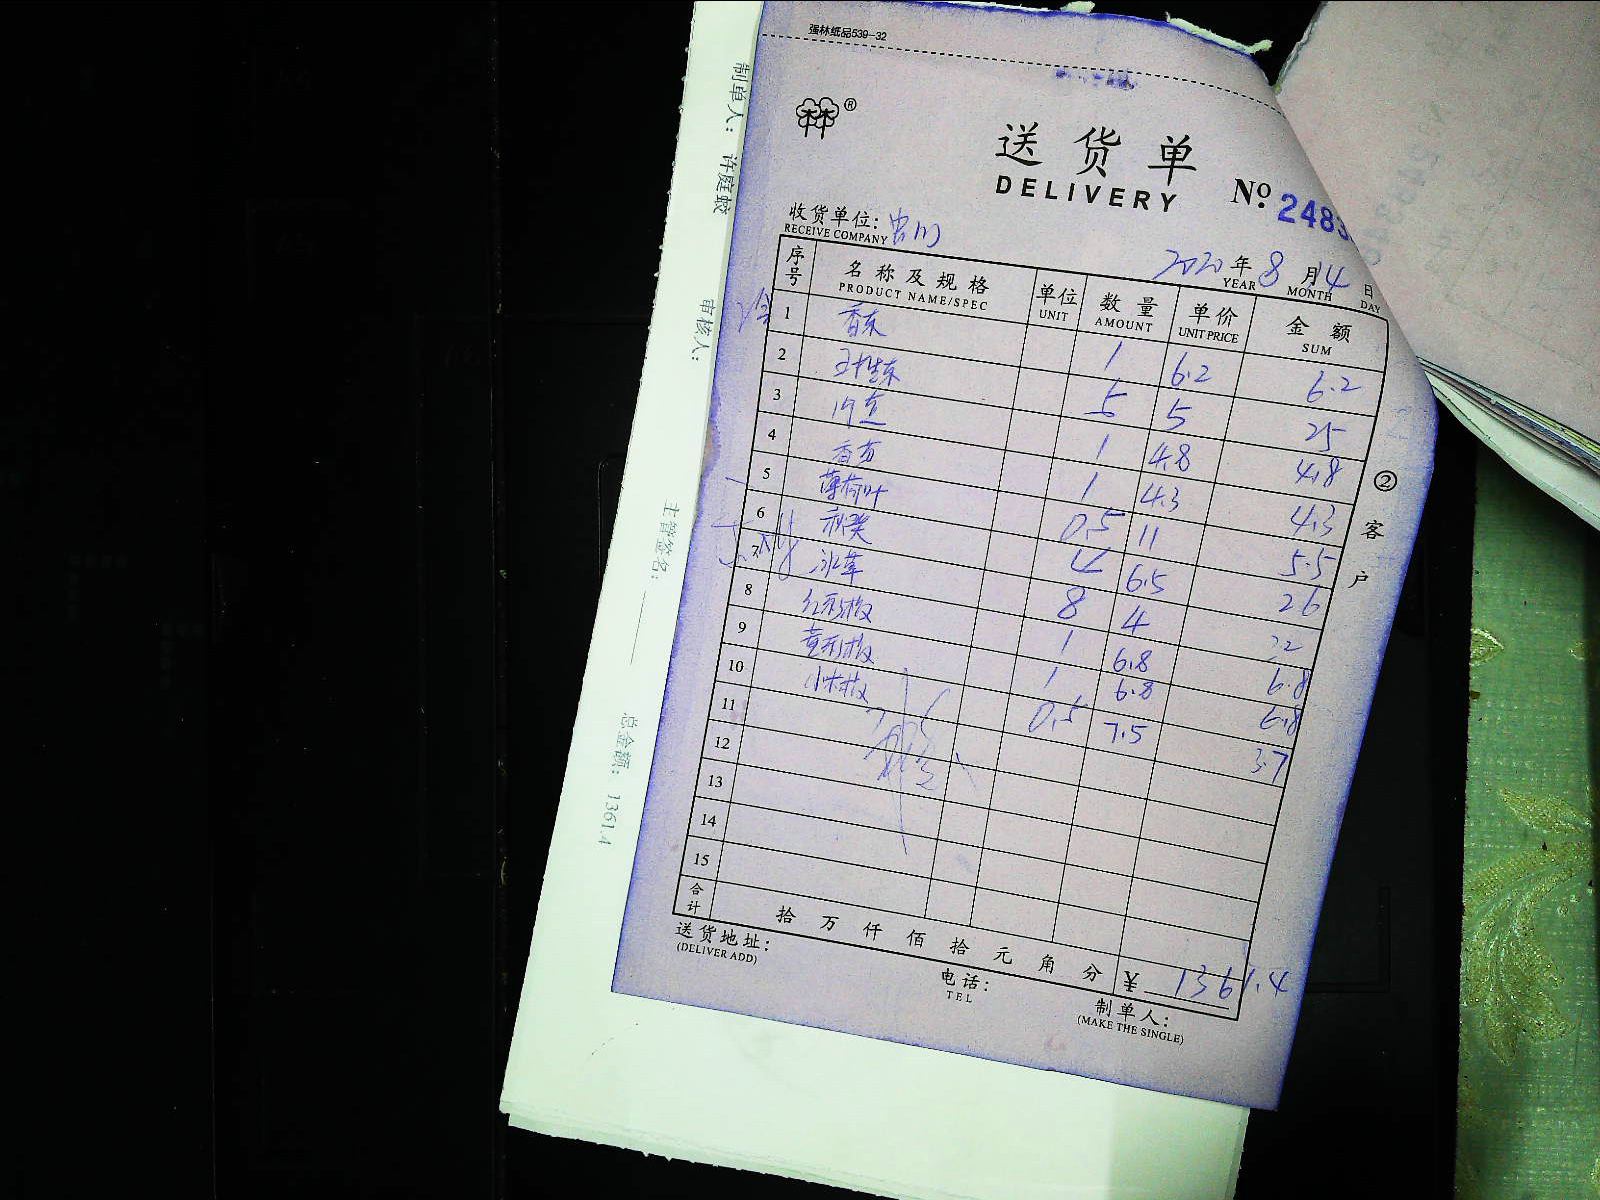 强林纸品539-32
®
送货单
DELIVERY
No. 2483
收货单位:
RECEIVE COMPANY
2020 年 8 月 4 日
YEAR MONTH DAY
序号 名称及规格 单位 数量 单价 金额
PRODUCT NAME/SPEC UNIT AMOUNT UNIT PRICE SUM
1 香菜 1 6.2 6.2
2 5 5 25
3 1 4.8 4.8
4 香芹 1 4.3 4.3
5 薄荷叶 0.5 11 5.5
6 秋葵 4 6.5 26
7 冰草 8 4 32
8 红彩椒 1 6.8 6.8
9 黄彩椒 1 6.8 6.8
10 小米椒 0.5 7.5 3.7
11
12
13
14
15
合计 拾万仟佰拾元角分 ¥ 1361.4
送货地址:
(DELIVER ADD)
电话:
TEL
制单人:
(MAKE THE SINGLE)
②客户
制单人: 许庭蛟
审核人:
主管签名:
总金额: 1361.4